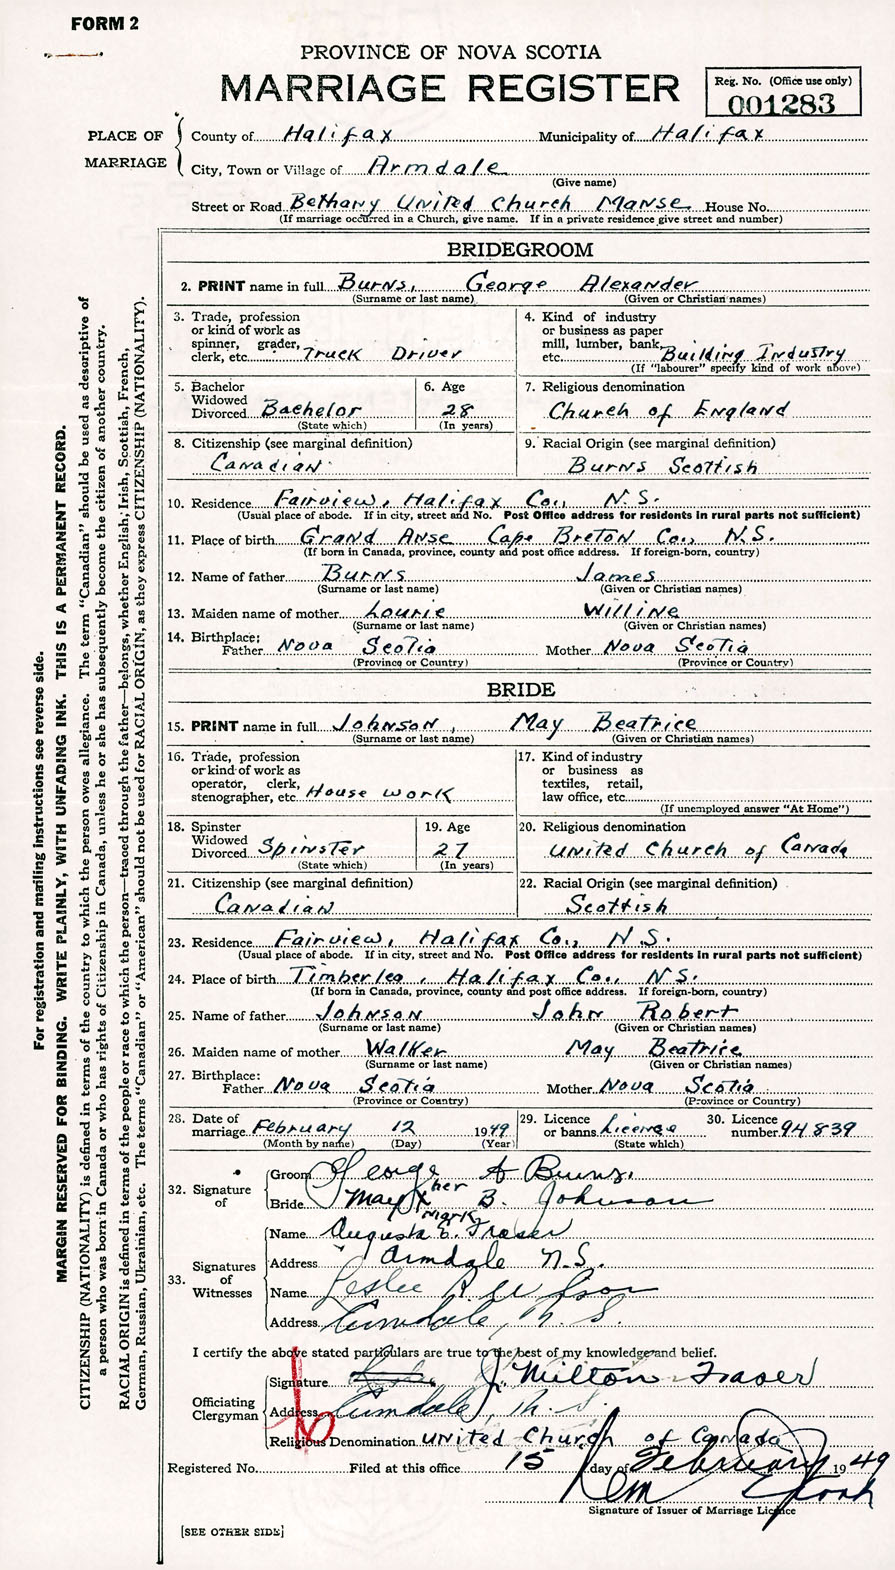 FORM 2
PROVINCE OF NOVA SCOTIA
MARRIAGE REGISTER
Reg. No. (Office use only)
001283
PLACE OF MARRIAGE
County of Halifax Municipality of Halifax
City, Town or Village of Armdale
(Give name)
Street or Road Bethany United Church Manse House No.
(If marriage occurred in a Church, give name. If in a private residence give street and number)
BRIDEGROOM
2. PRINT name in full Burns, George Alexander
(Surname or last name) (Given or Christian names)
3. Trade, profession or kind of work as spinner, grader, clerk, etc. Truck Driver
4. Kind of industry or business as paper mill, lumber, bank, etc. Building Industry
(If "labourer" specify kind of work above)
5. Bachelor Widowed Divorced Bachelor
(State which)
6. Age 28
(In years)
7. Religious denomination
Church of England
8. Citizenship (see marginal definition)
Canadian
9. Racial Origin (see marginal definition)
Burns Scottish
10. Residence Fairview, Halifax Co., N.S.
(Usual place of abode. If in city, street and No. Post Office address for residents in rural parts not sufficient)
11. Place of birth Grand Anse Cape Breton Co., N.S.
(If born in Canada, province, county and post office address. If foreign-born, country)
12. Name of father Burns James
(Surname or last name) (Given or Christian names)
13. Maiden name of mother Lourie Willine
(Surname or last name) (Given or Christian names)
14. Birthplace:
Father Nova Scotia Mother Nova Scotia
(Province or Country) (Province or Country)
BRIDE
15. PRINT name in full Johnson, May Beatrice
(Surname or last name) (Given or Christian names)
16. Trade, profession or kind of work as operator, clerk, stenographer, etc. House work
17. Kind of industry or business as textiles, retail, law office, etc.
(If unemployed answer "At Home")
18. Spinster Widowed Divorced Spinster
(State which)
19. Age 27
(In years)
20. Religious denomination
United Church of Canada
21. Citizenship (see marginal definition)
Canadian
22. Racial Origin (see marginal definition)
Scottish
23. Residence Fairview, Halifax Co., N.S.
(Usual place of abode. If in city, street and No. Post Office address for residents in rural parts not sufficient)
24. Place of birth Timberlea, Halifax Co., N.S.
(If born in Canada, province, county and post office address. If foreign-born, country)
25. Name of father Johnson John Robert
(Surname or last name) (Given or Christian names)
26. Maiden name of mother Walker May Beatrice
(Surname or last name) (Given or Christian names)
27. Birthplace:
Father Nova Scotia Mother Nova Scotia
(Province or Country) (Province or Country)
28. Date of marriage February 12 1949
(Month by name) (Day) (Year)
29. Licence or banns License
(State which)
30. Licence number 94839
32. Signature of
Groom George A Burns.
Bride May X her mark B. Johnson
33. Signatures of Witnesses
Name Augusta E. Fraser
Address Armdale N.S.
Name Leslie R.
Address Armdale, N.S.
I certify the above stated particulars are true to the best of my knowledge and belief.
Officiating Clergyman
Signature J. Milton Fraser
Address Armdale, N.S.
Religious Denomination United Church of Canada
Registered No. Filed at this office 15 day of February 1949
Signature of Issuer of Marriage Licence
[SEE OTHER SIDE]
For registration and mailing instructions see reverse side.
MARGIN RESERVED FOR BINDING. WRITE PLAINLY, WITH UNFADING INK. THIS IS A PERMANENT RECORD.
CITIZENSHIP (NATIONALITY) is defined in terms of the country to which the person owes allegiance. The term "Canadian" should be used as descriptive of
a person who was born in Canada or who has rights of Citizenship in Canada, unless he or she has subsequently become the citizen of another country.
RACIAL ORIGIN is defined in terms of the people or race to which the person—traced through the father—belongs, whether English, Irish, Scottish, French,
German, Russian, Ukrainian, etc. The terms "Canadian" or "American" should not be used for RACIAL ORIGIN, as they express CITIZENSHIP (NATIONALITY).